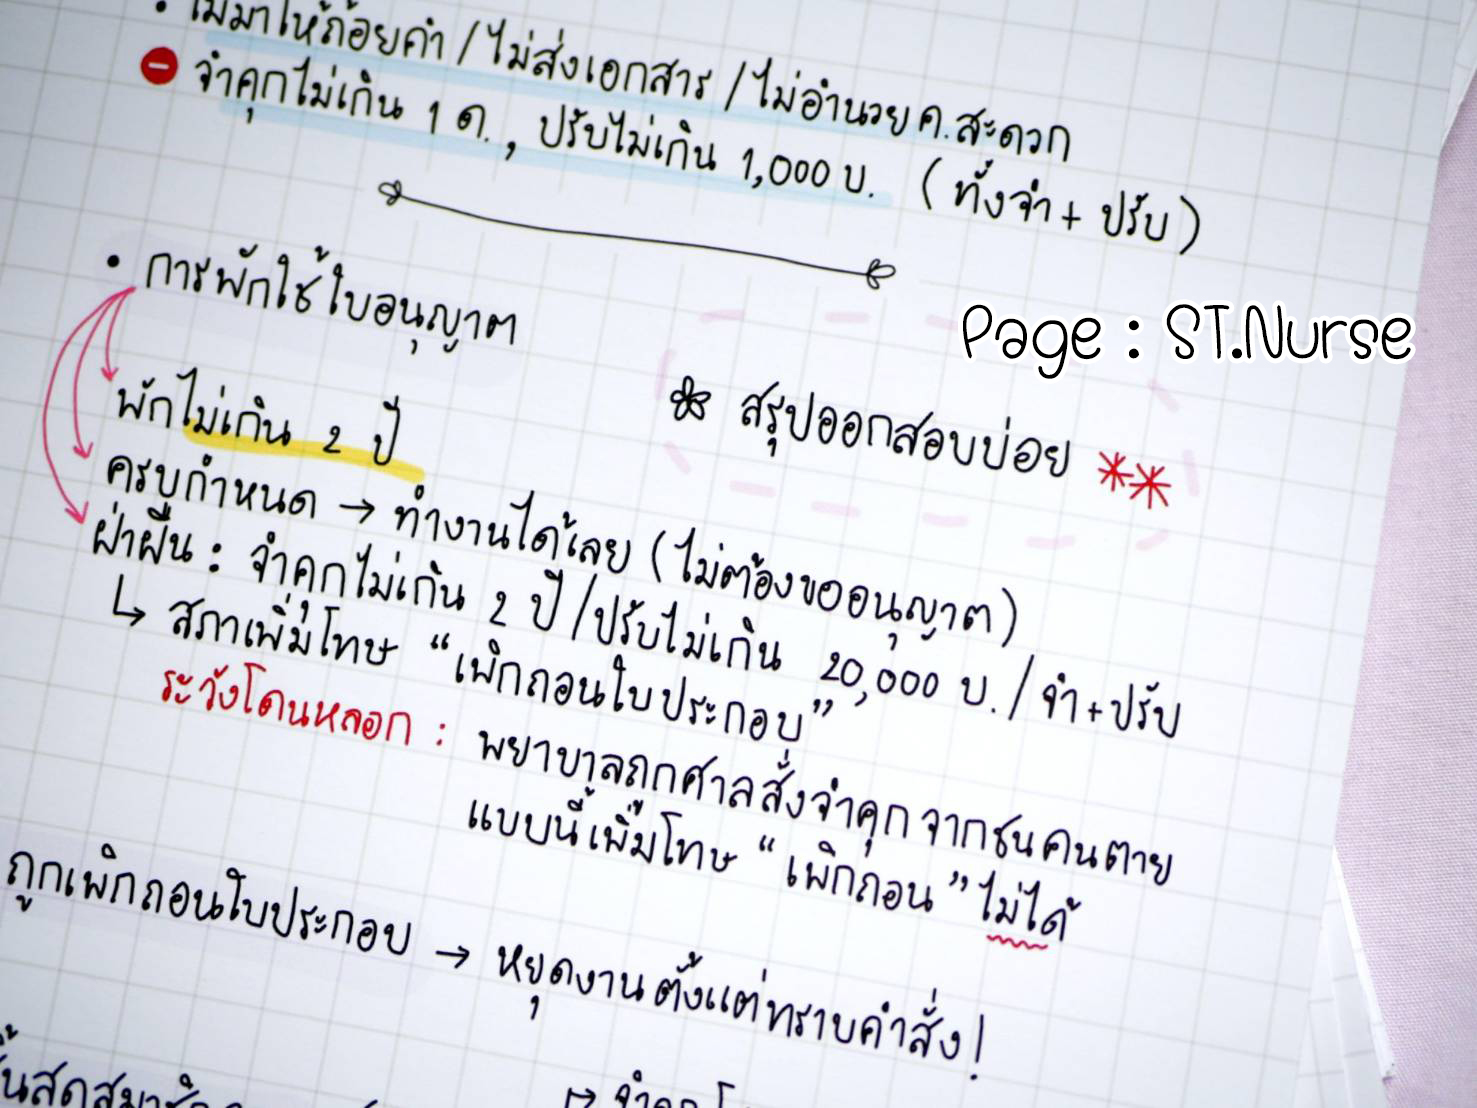 • ไม่มาให้ถ้อยคำ / ไม่ส่งเอกสาร / ไม่อำนวย ค. สะดวก
จำคุกไม่เกิน 1 ด. , ปรับไม่เกิน 1,000 บ. ( ทั้งจำ + ปรับ )
• การพักใช้ใบอนุญาต
Page : ST.Nurse
สรุปออกสอบบ่อย **
พักไม่เกิน 2 ปี
ครบกำหนด → ทำงานได้เลย ( ไม่ต้องขออนุญาต )
ฝ่าฝืน : จำคุกไม่เกิน 2 ปี / ปรับไม่เกิน 20,000 บ. / จำ + ปรับ
↳ สภาเพิ่มโทษ “ เพิกถอนใบประกอบ ”
ระวังโดนหลอก : พยาบาลถูกศาลสั่งจำคุก จากชนคนตาย
แบบนี้ เพิ่มโทษ “ เพิกถอน ” ไม่ได้
ถูกเพิกถอนใบประกอบ → หยุดงาน ตั้งแต่ทราบคำสั่ง !